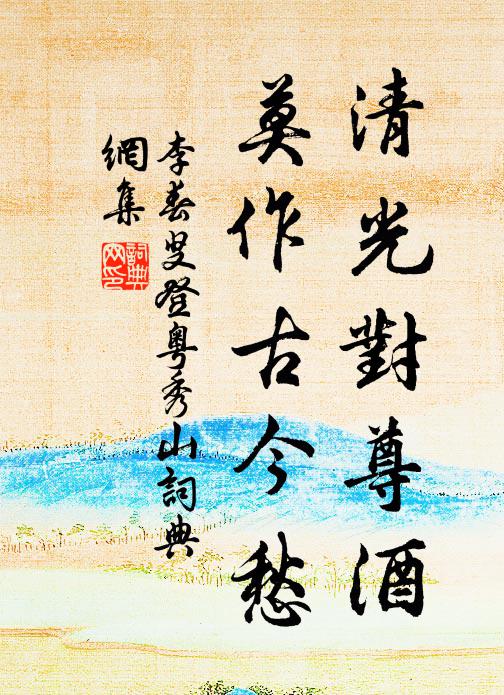 清光對尊酒
莫作古今愁
李春叟登粵秀山詞典
網集
詞典
网印